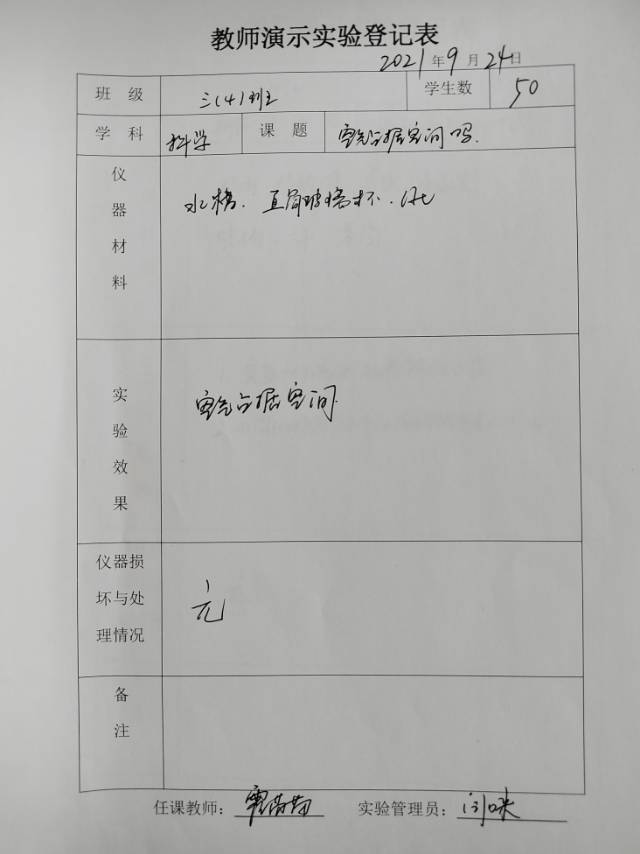 教师演示实验登记表
2021年9月24日
班级 三(4)班 学生数 50
学科 科学 课题 空气占据空间吗
仪器材料 水槽. 直筒玻璃杯.
实验效果 空气占据空间
仪器损坏与处理情况 无
备注
任课教师:
实验管理员: